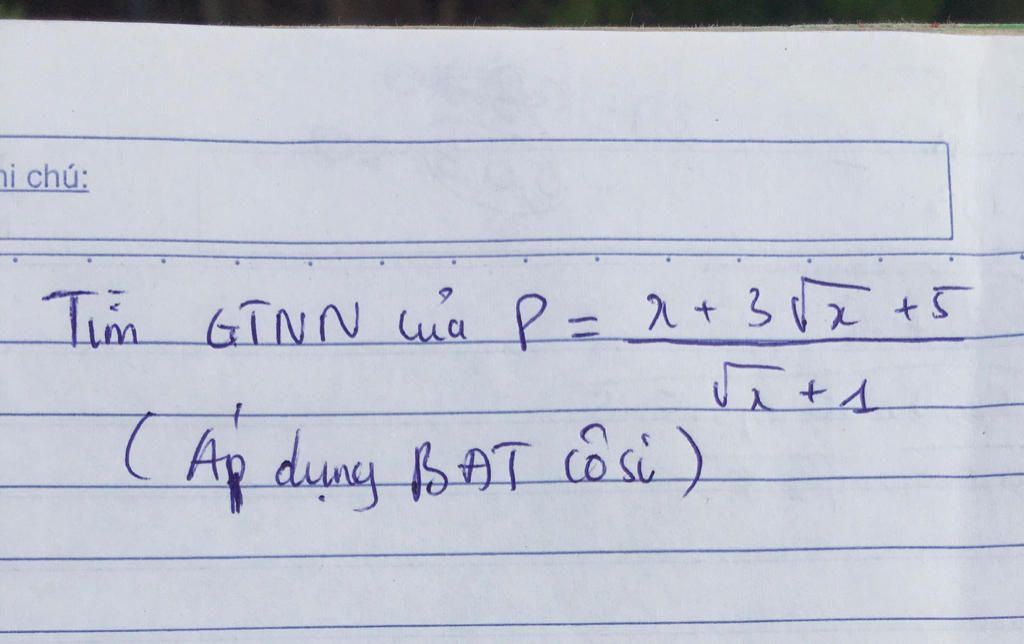 hi chú:
Tìm GTNN của P = \frac{x + 3\sqrt{x} + 5}{\sqrt{x} + 1}
( Áp dụng BĐT Côsi )